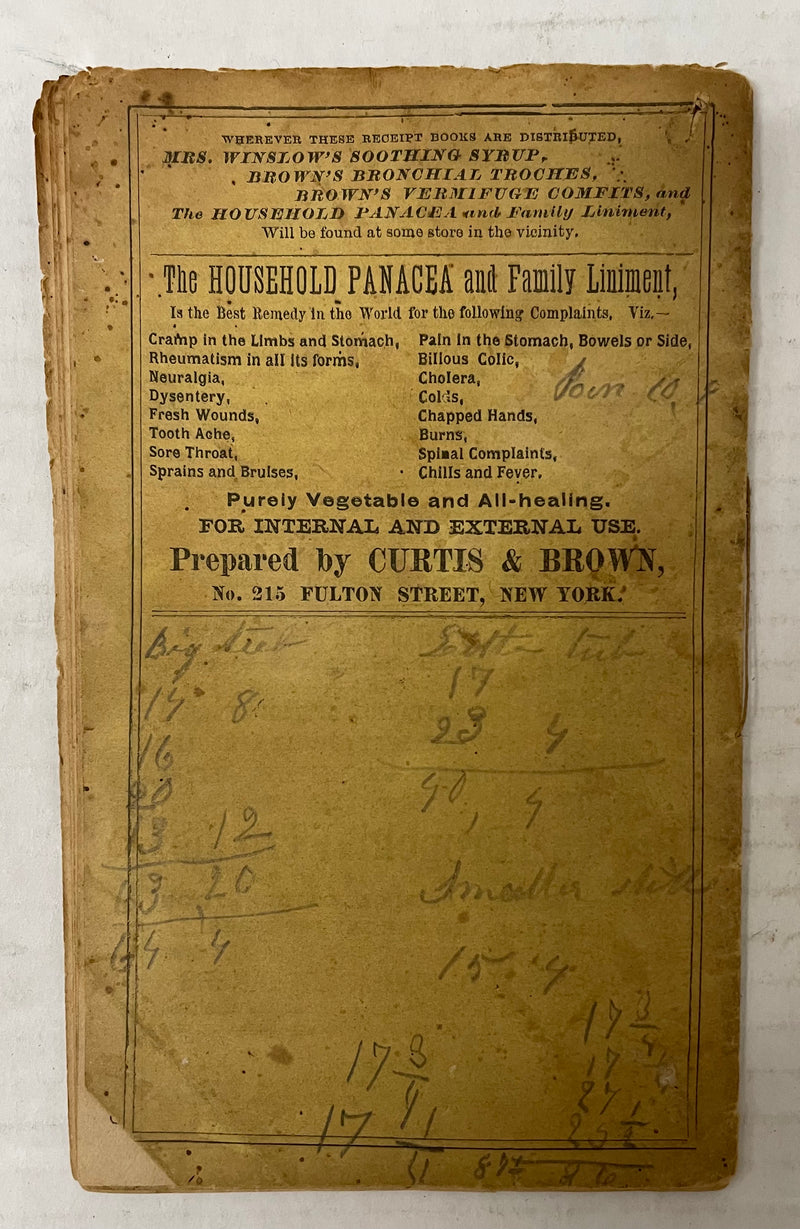 WHEREVER THESE RECEIPT BOOKS ARE DISTRIBUTED,
MRS. WINSLOW'S SOOTHING SYRUP,
BROWN'S BRONCHIAL TROCHES,
BROWN'S VERMIFUGE COMFITS, and
The HOUSEHOLD PANACEA and Family Liniment,
Will be found at some store in the vicinity.
The HOUSEHOLD PANACEA and Family Liniment,
Is the Best Remedy in the World for the following Complaints, Viz.—
Cramp in the Limbs and Stomach, Pain in the Stomach, Bowels or Side,
Rheumatism in all its forms, Bilious Colic,
Neuralgia, Cholera,
Dysentery, Colds,
Fresh Wounds, Chapped Hands,
Tooth Ache, Burns,
Sore Throat, Spinal Complaints,
Sprains and Bruises, Chills and Fever.
Purely Vegetable and All-healing.
FOR INTERNAL AND EXTERNAL USE.
Prepared by CURTIS & BROWN,
No. 215 FULTON STREET, NEW YORK.
Big
17
8
23 4
16
40, 4
12
63 20
64 4
Smaller
15 4
17 3
17 3
4
17
17 1